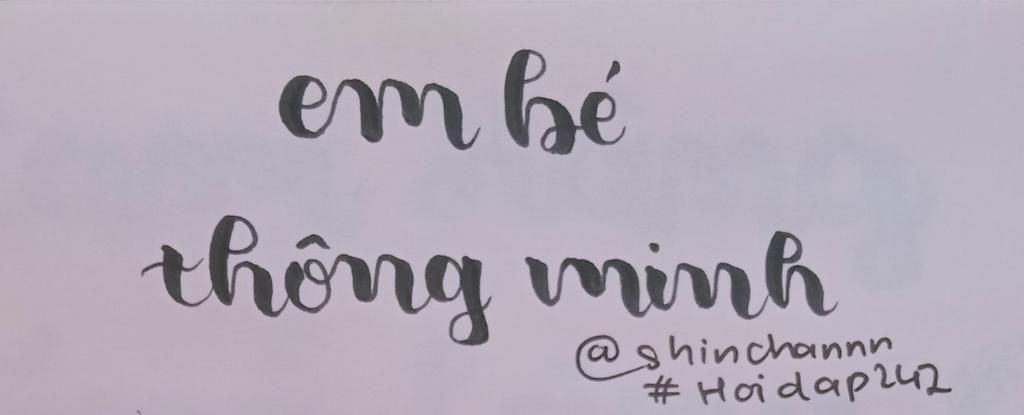 em bé
thông minh
@shinchannn
#Hoidap242